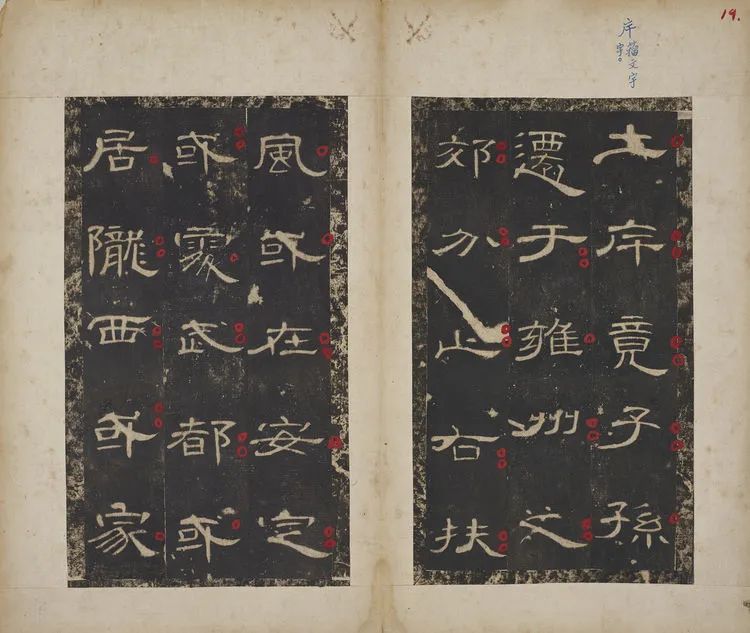 19.
土斥竟子孫
遷于雍州之
郊分止右扶
風或在安定
或處武都或
居隴西或家